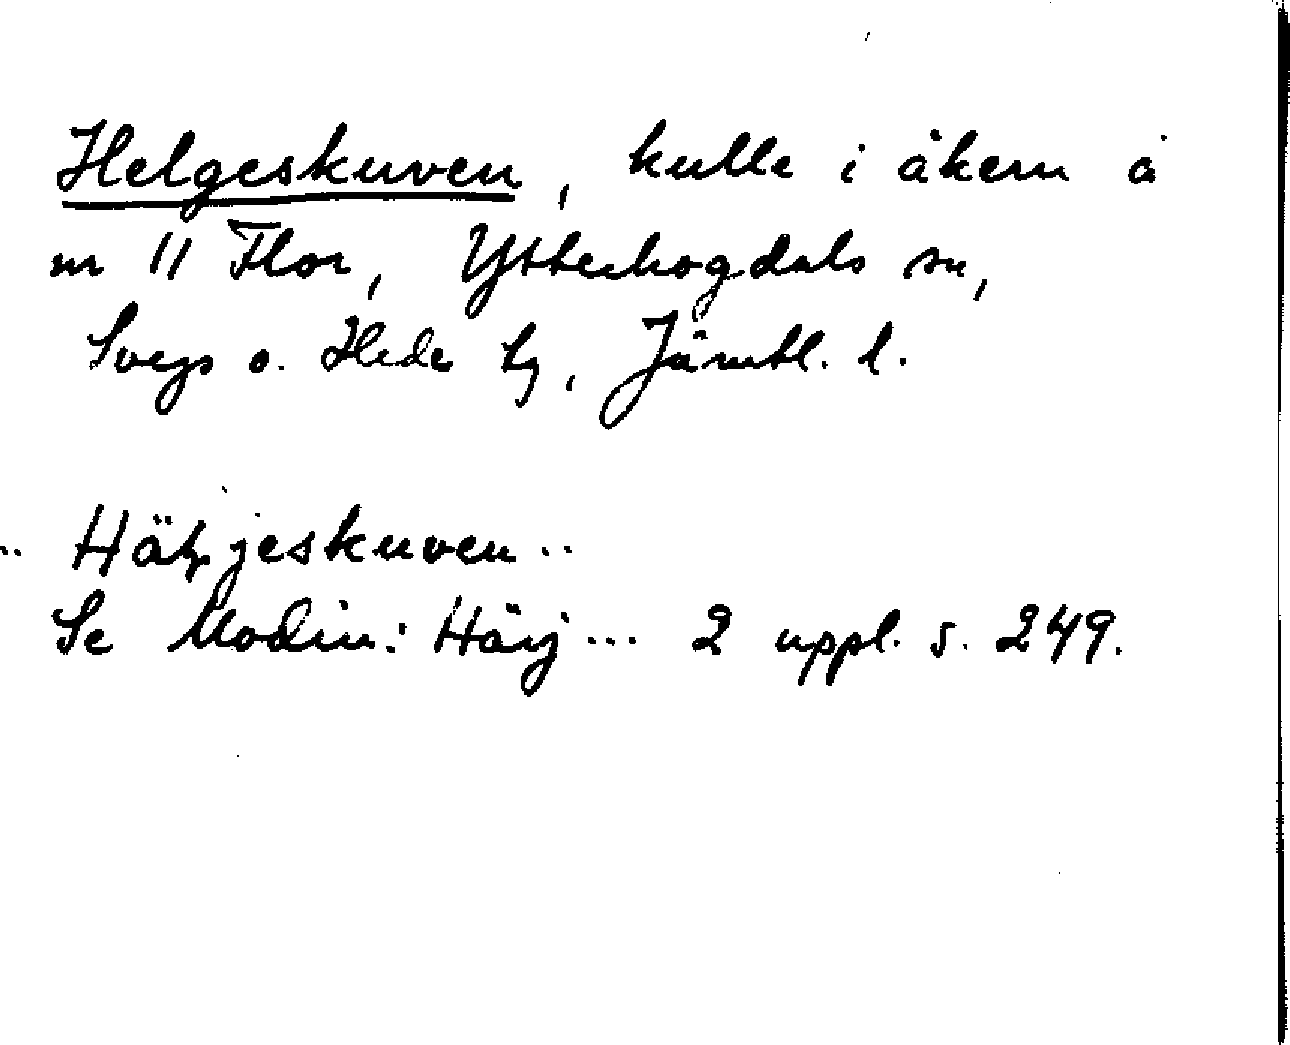 Helgeskuven, kulle i åkern å
nr 11 Flor, Ytterhogdals sn,
Svegs o. Hede tg, Jämtl. l.
.. Hälgjeskuven ..
Se Modin: Härj... 2 uppl. s. 249.